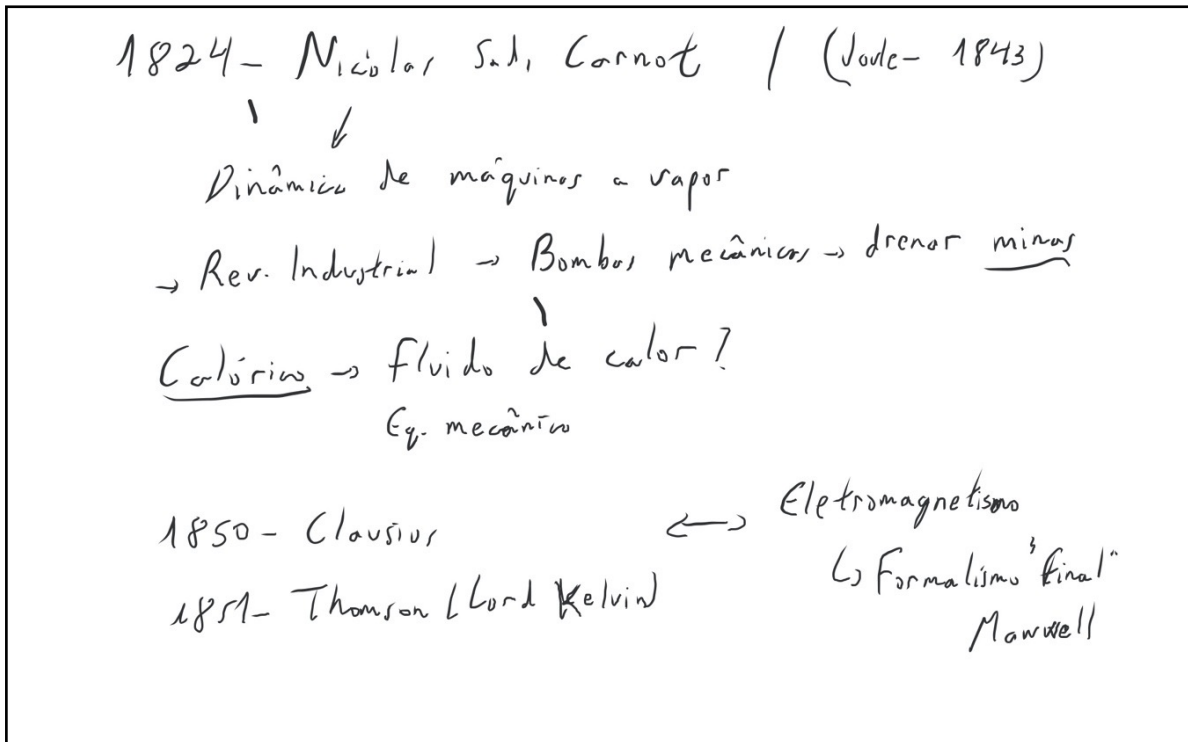 1824 - Nicolas Sadi Carnot / (Joule - 1843)
Dinâmica de máquinas a vapor
→ Rev. Industrial → Bombas mecânicas → drenar minas
Calórico → fluido de calor?
Eq. mecânico
1850 - Clausius ↔ Eletromagnetismo
↳ Formalismo "final"
1851 - Thomson (Lord Kelvin)
Maxwell